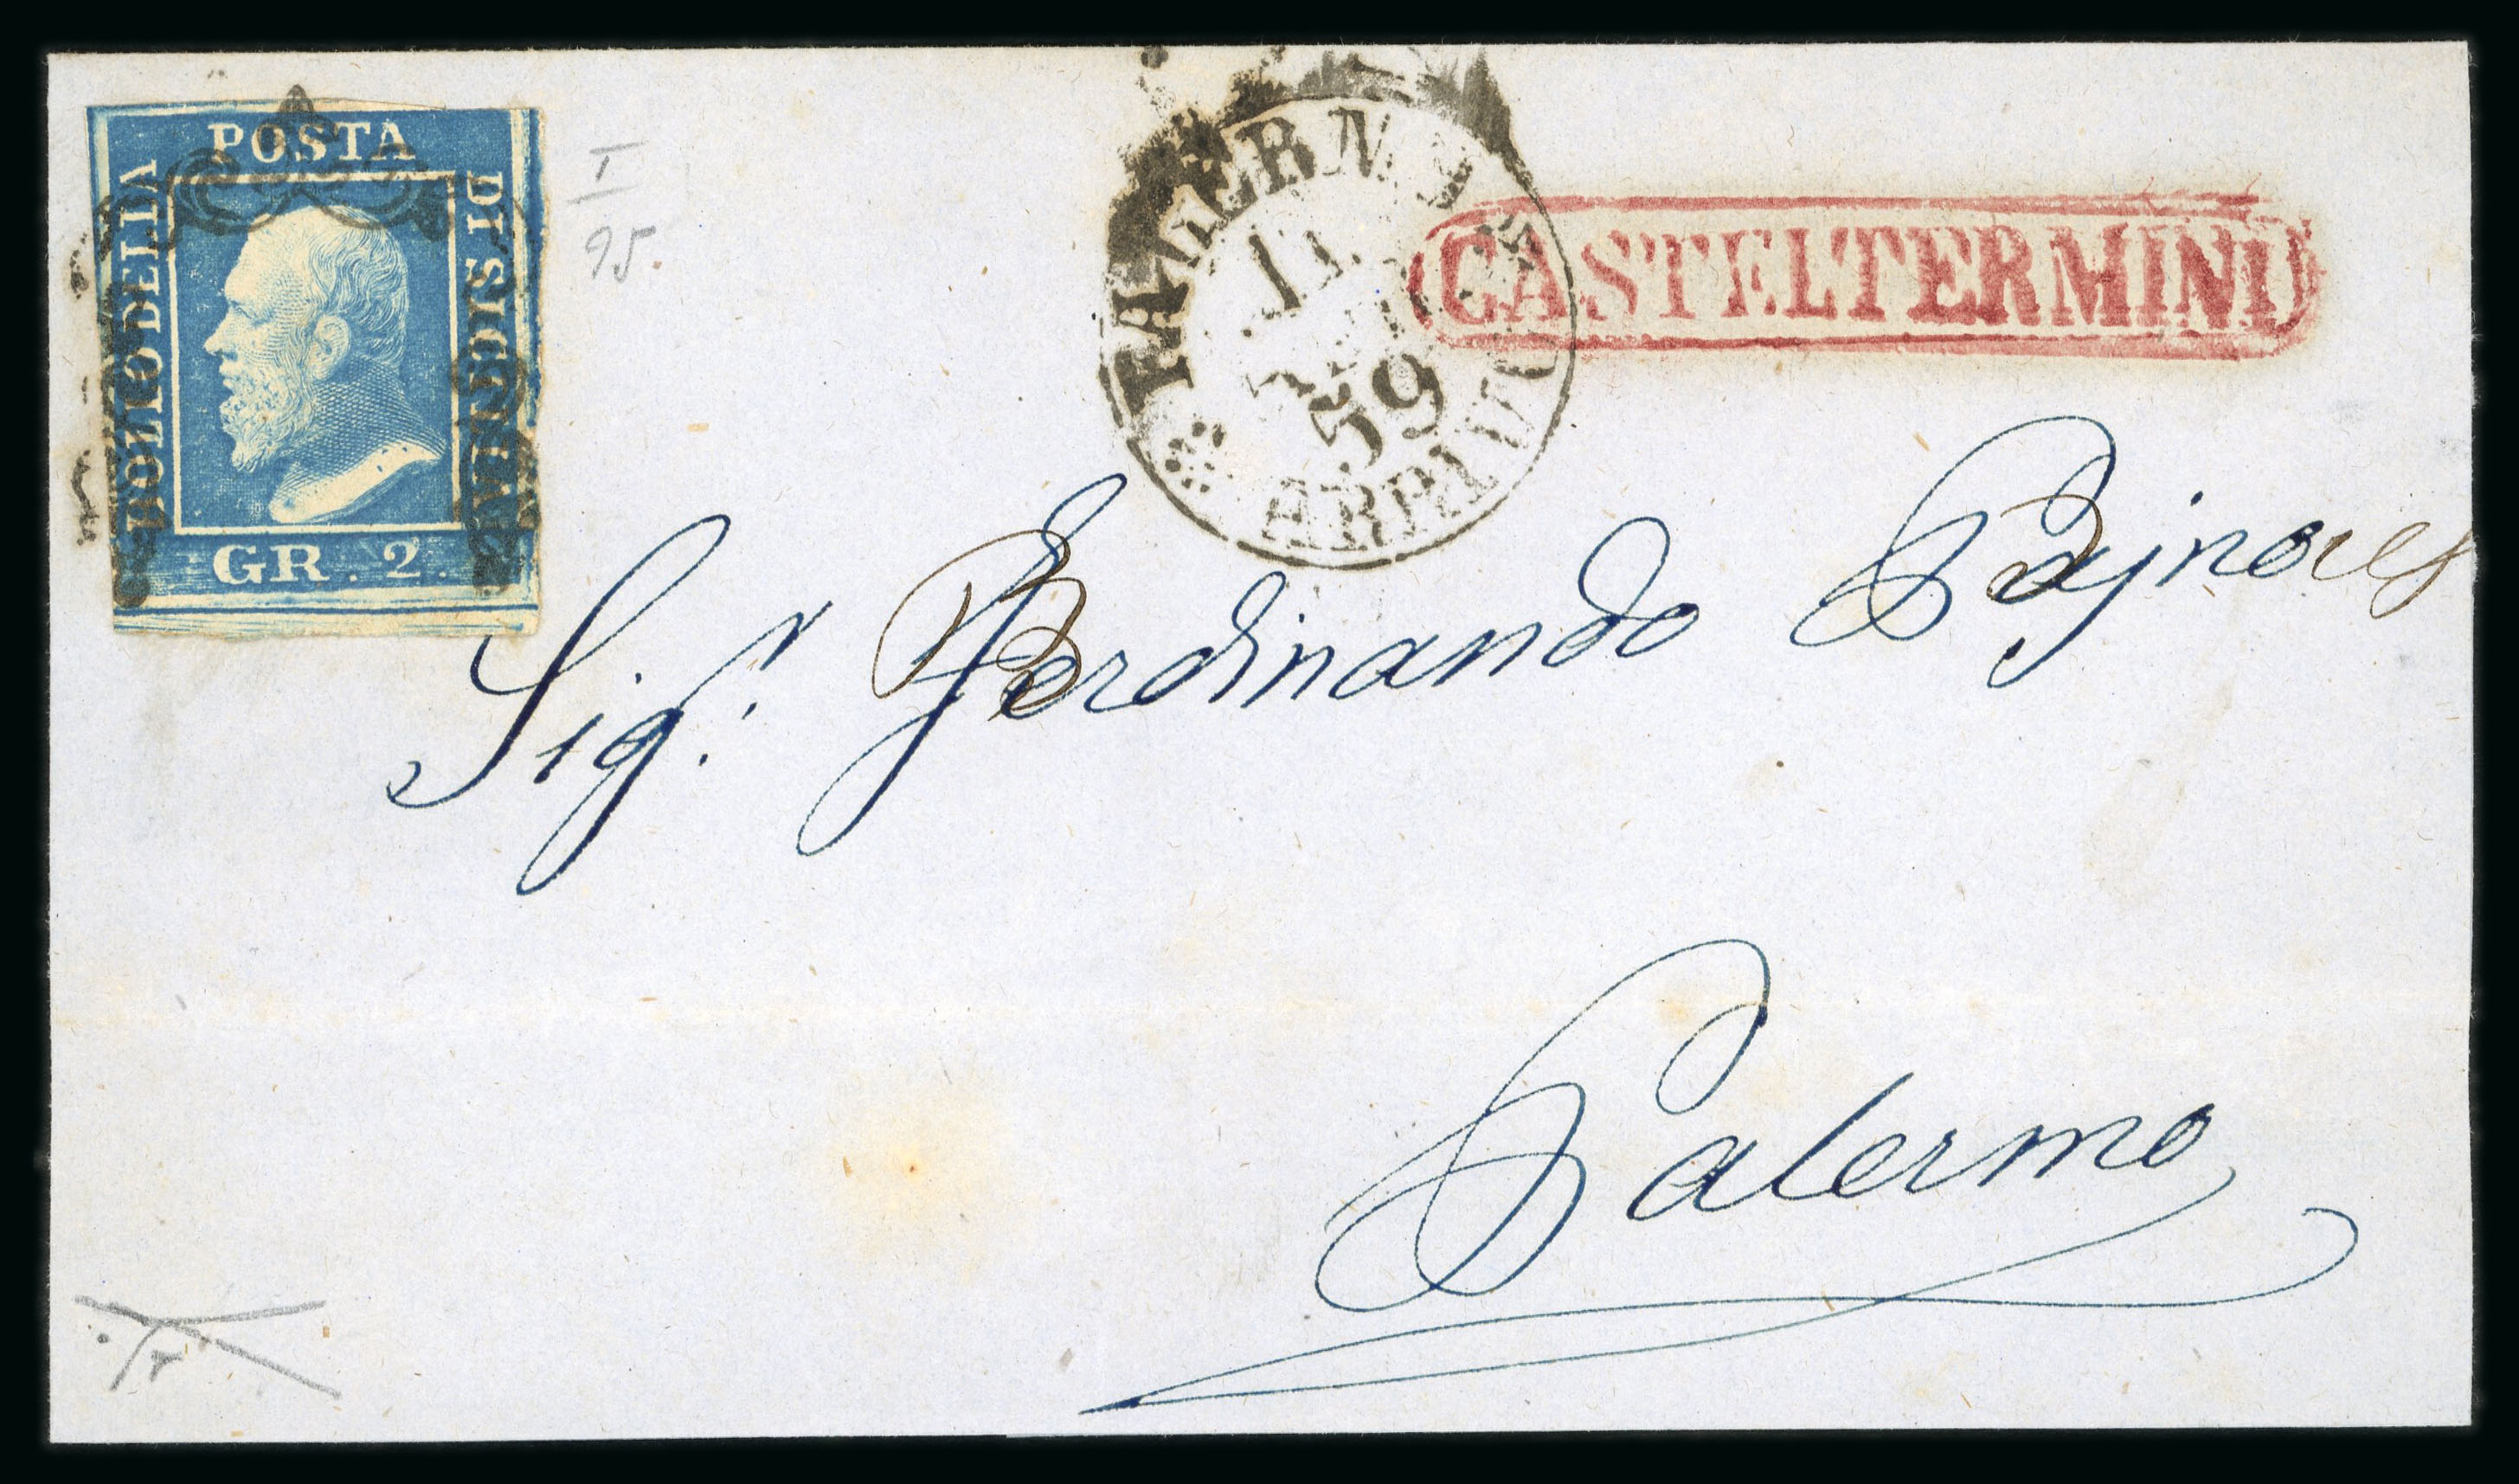 POSTA
BOLLO DELLA
DI SICILIA
GR. 2.
I
95.
PALERMO
11
59
ARRIVO
CASTELTERMINI
Sig.r Ferdinando
Palermo